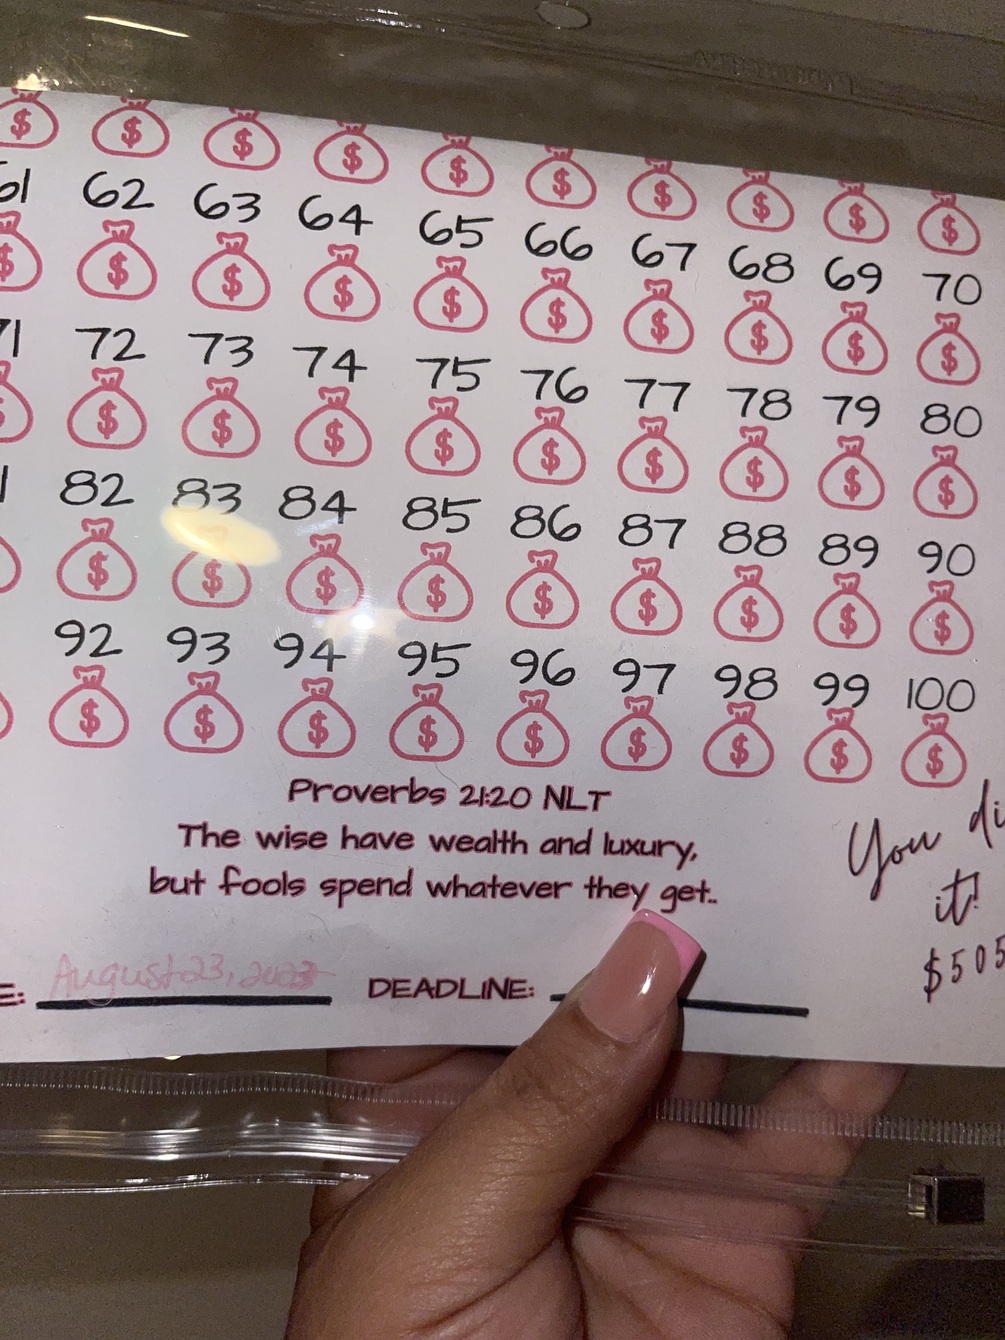 61 62 63 64 65 66 67 68 69 70
71 72 73 74 75 76 77 78 79 80
82 83 84 85 86 87 88 89 90
92 93 94 95 96 97 98 99 100
Proverbs 21:20 NLT
The wise have wealth and luxury,
but fools spend whatever they get..
You di
it!
$505
E: August 23, 2023 DEADLINE: